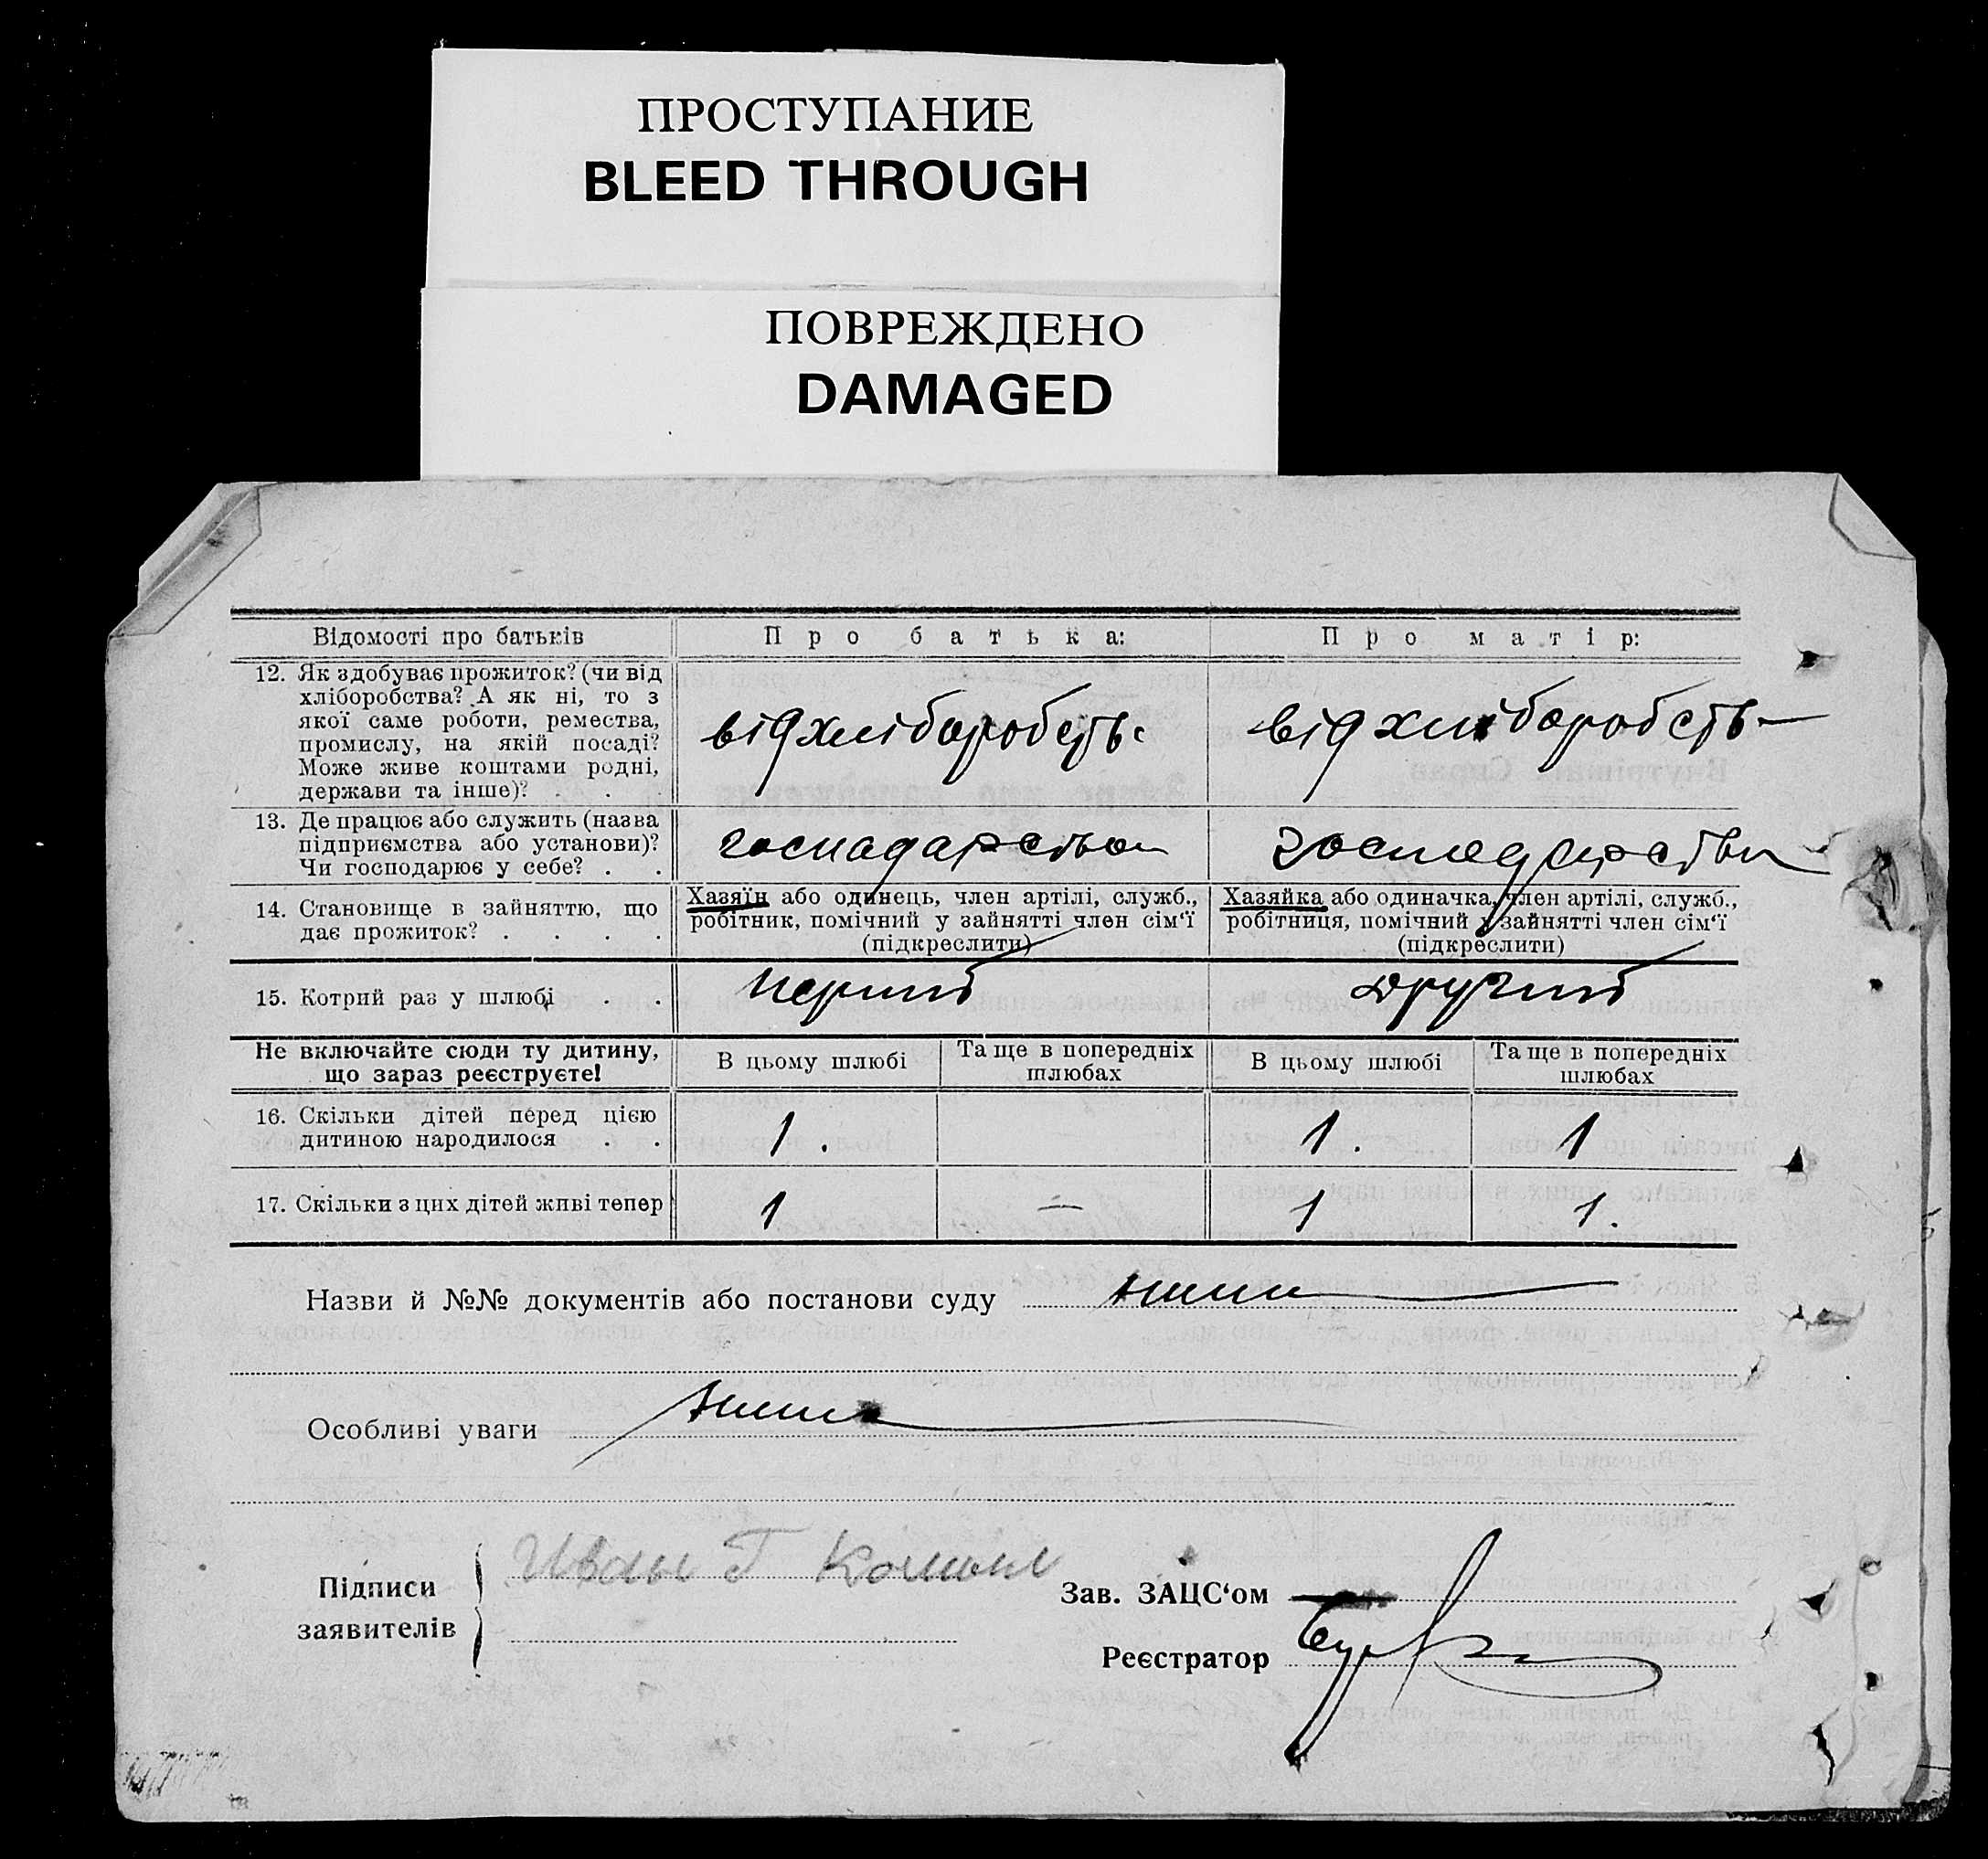 ПРОСТУПАНИЕ
BLEED THROUGH
ПОВРЕЖДЕНО
DAMAGED
Відомості про батьків
Про батька:
Про матір:
12. Як здобуває прожиток? (чи від
хліборобства? А як ні, то з
якої саме роботи, ремества,
промислу, на якій посаді?
Може живе коштами родні,
держави та інше)? . .
від хліборобств.
від хліборобств
13. Де працює або служить (назва
підприємства або установи)?
Чи господарює у себе? . .
14. Становище в зайняттю, що
дає прожиток? . . . .
Хазяїн або одинець, член артілі, служб.,
робітник, помічний у зайнятті член сім'ї
(підкреслити)
Хазяйка або одиначка, член артілі, служб.,
робітниця, помічний у зайнятті член сім'ї
(підкреслити)
15. Котрий раз у шлюбі . .
перший
другий
Не включайте сюди ту дитину,
що зараз реєструєте!
В цьому шлюбі
Та ще в попередніх
шлюбах
В цьому шлюбі
Та ще в попередніх
шлюбах
16. Скільки дітей перед цією
дитиною народилося . .
1.
1.
1
17. Скільки з цих дітей живі тепер
1
—
1
1.
Назви й №№ документів або постанови суду
Особливі уваги
Підписи
заявителів
Иван Г
Зав. ЗАЦС'ом
Реєстратор